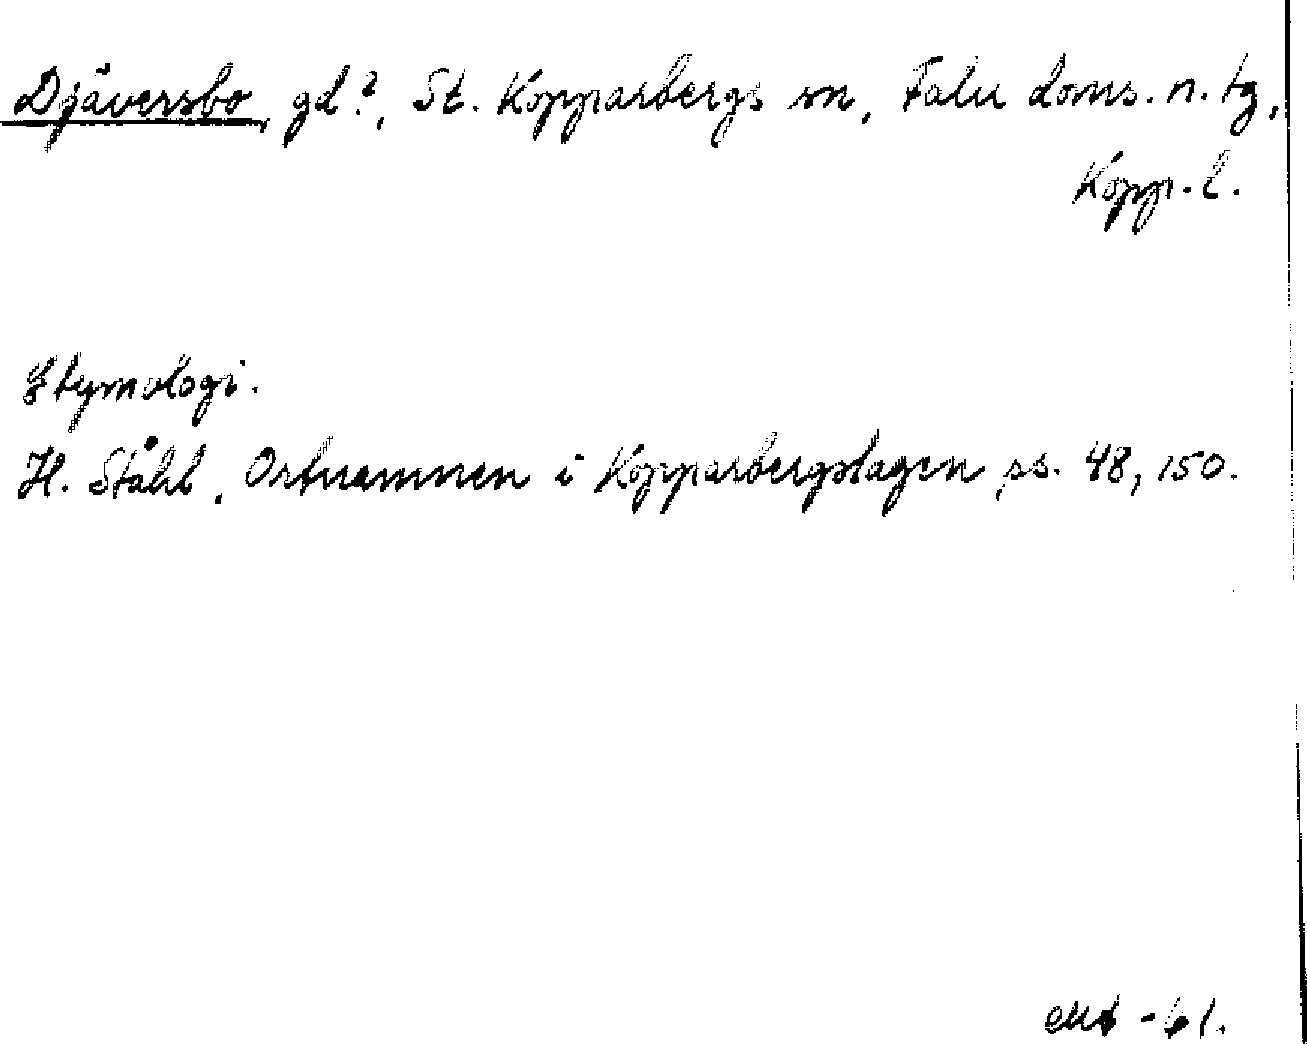 Djäversbo, gd?, St. Kopparbergs sn, Falu doms. n. tg,
Kopp. l.
Etymologi.
H. Ståhl, Ortnamnen i Kopparbergslagen ss. 48, 150.
-61.